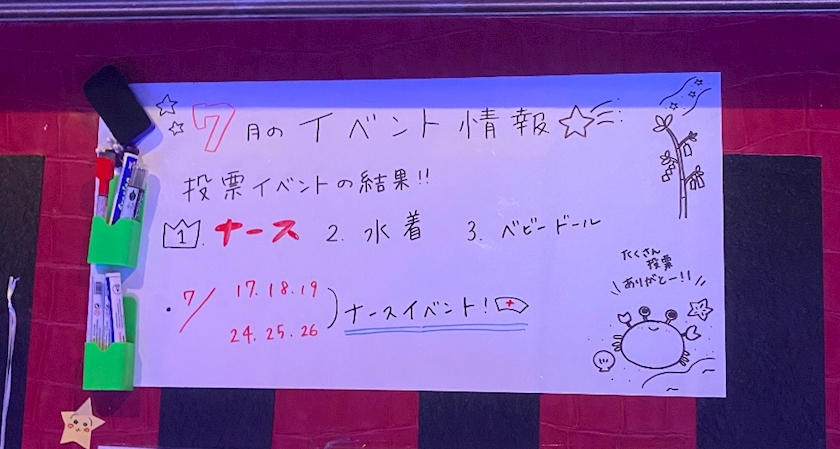 7月のイベント情報
投票イベントの結果!!
1. ナース 2. 水着 3. ベビードール
たくさん
投票
ありがとー!!
7/ 17.18.19
24.25.26
ナースイベント!